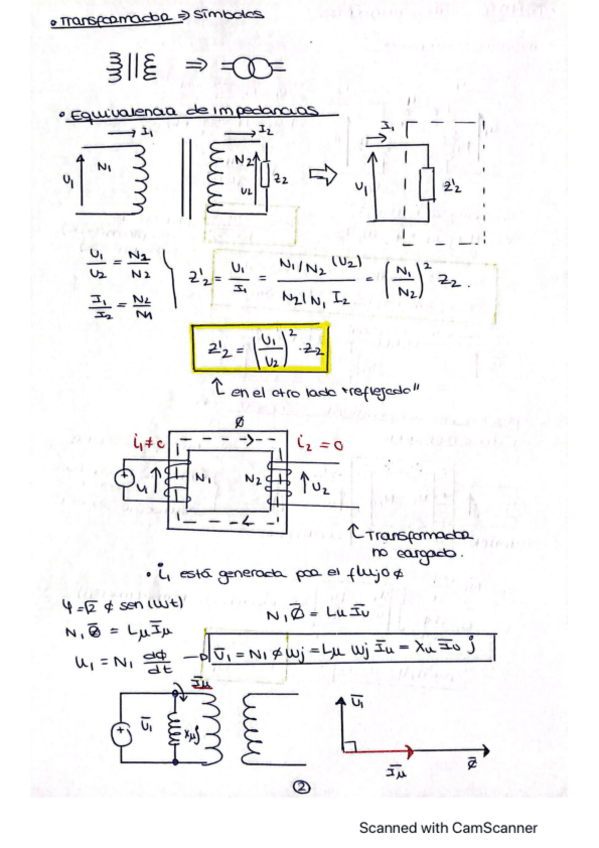 • Transformador ⇒ símbolos
⇒
• Equivalencia de impedancias
I1 I2 I1
U1 N1 N2 U2 Z2 ⇒ U1 Z'2
U1/U2 = N2/N2
I1/I2 = N2/N1
Z'2 = U1/I1 = N1/N2 (U2) / N2/N1 I2 = (N1/N2)² Z2.
Z'2 = (U1/U2)² · Z2
en el otro lado "reflejado"
ϕ
i1≠0 i2=0
U N1 N2 U2
Transformador
no cargado.
• i1 está generada por el flujo ϕ
φ=√2 ϕ sen(ωt)
N1 ϕ̅ = Lμ I̅υ
N1 ϕ̅ = Lμ I̅μ
U1 = N1 dϕ/dt → U̅1 = N1 ϕ ωj = Lμ ωj I̅μ = Xμ I̅υ j
I̅μ
U̅1 Xμj
U̅1
I̅μ ϕ̅
2
Scanned with CamScanner